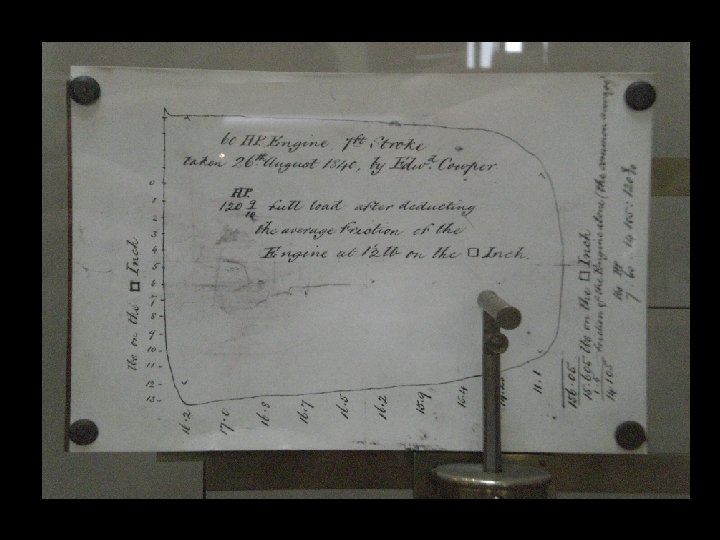 60 HP. Engine 7ft Stroke
taken 26th August 1840, by Edwd. Cowper
HP.
120 9/10 full load after deducting
the average friction of the
Engine at 1½ lb on the □ Inch.
lbs on the □ Inch
0
1
2
3
4
5
6
7
8
9
10
11
12
13
16.2
17.0
16.8
16.7
16.5
16.2
15.9
15.4
11.1
156.05
15.605 lbs on the □ Inch
1.5 friction of the Engine alone (the common average)
14.105
HP
7 : 60 :: 14.105 : 120 9/10